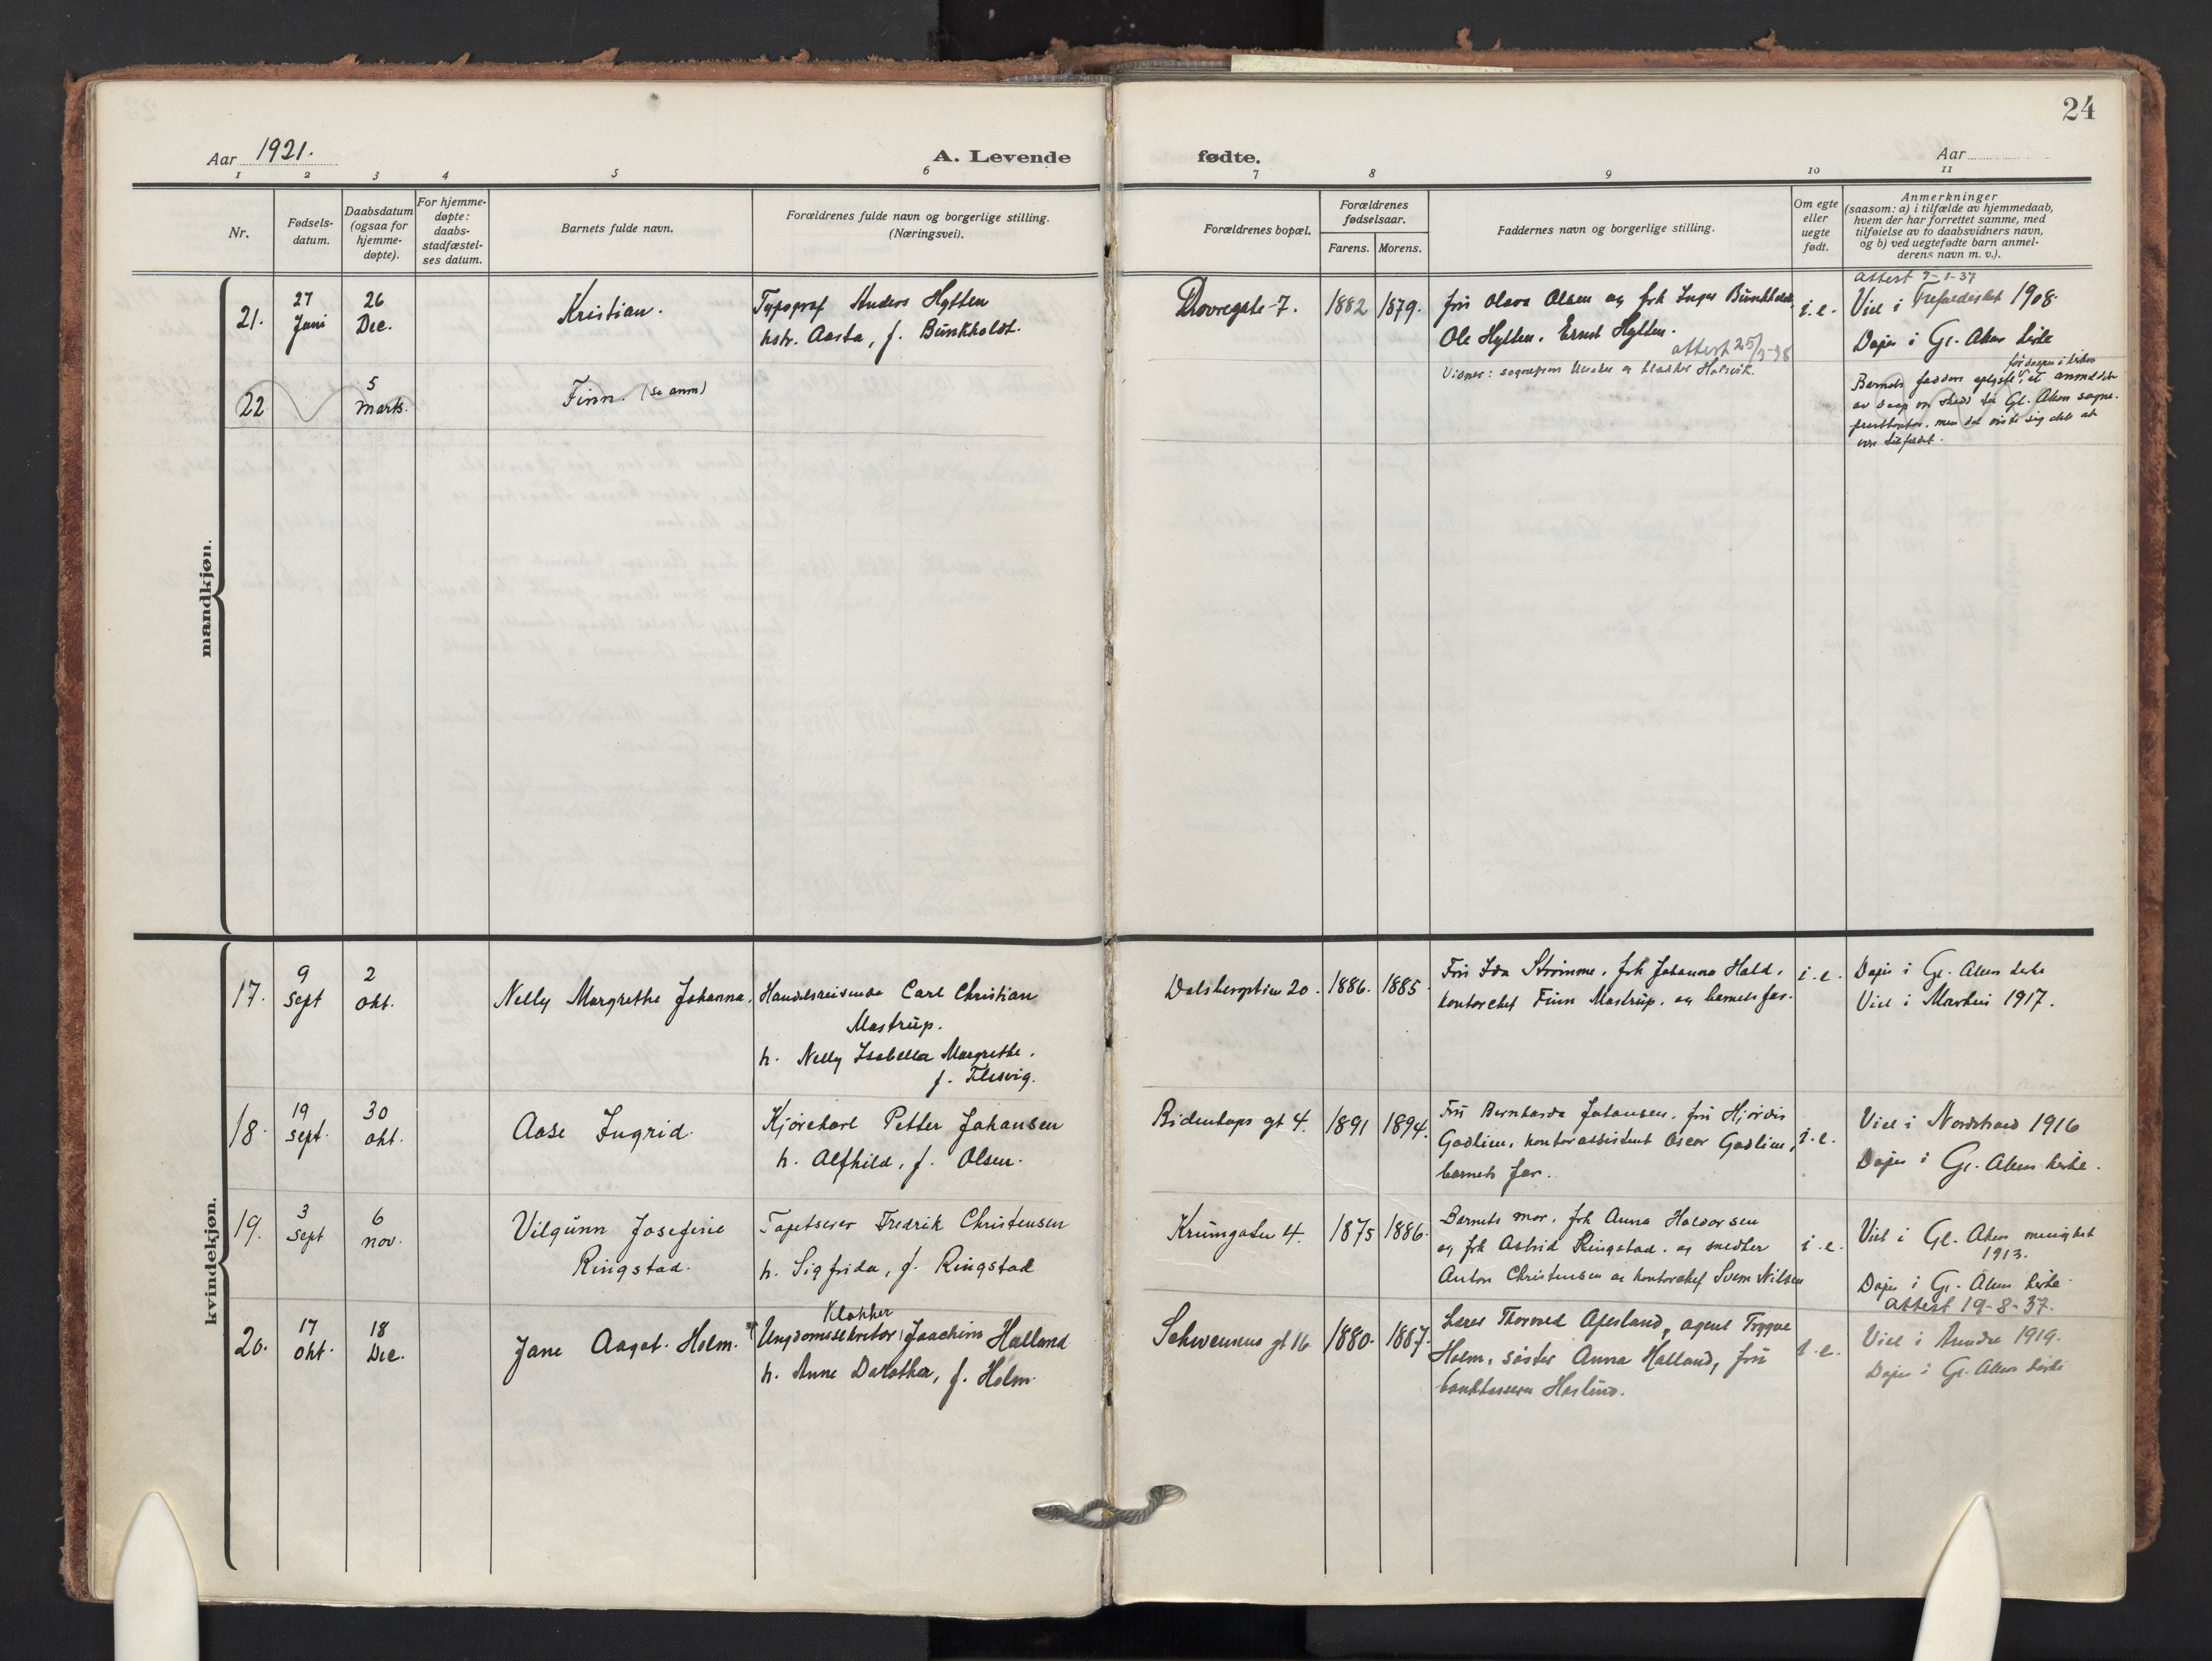 24
Aar 1921.
A. Levende
fødte.
Aar
1 2 3 4 5 6 7 8 9 10 11
Nr.
Fødsels-
datum.
Daabsdatum
(ogsaa for
hjemme-
døpte).
For hjemme-
døpte:
daabs-
stadfæstel-
ses datum.
Barnets fulde navn.
Forældrenes fulde navn og borgerlige stilling.
(Næringsvei).
Forældrenes bopæl.
Forældrenes
fødselsaar.
Farens. Morens.
Faddernes navn og borgerlige stilling.
Om egte
eller
uegte
født.
Anmerkninger
(saasom: a) i tilfælde av hjemmedaab,
hvem der har forrettet samme, med
tilføielse av to daabsvidners navn,
og b) ved uegtefødte barn anmel-
derens navn m. v.).
mandkjøn.
21.
27
Juni
26
Dec.
Kristian.
Typograf Anders Hytten
hstr. Aasta, f. Bunkholdt.
Dovregate 7.
1882
1879.
fru Olava Olsen og frk Inger Bunkholdt
Ole Hytten. Ernst Hytten.
attest 25/5-38
Vidner: sogneprest og klokker
i.e.
attest 9-1-37
Viet i 1908.
Døpt i Gl. Aker kirke
22
5
Marts.
Finn. (se anm)
Barnets faddere at anmeldelse
av daap var skedd til Gl. Aker sogne-
prestkontor, men det viste sig ikke at
være tilfældet.
kvindekjøn.
17.
9
Sept
2
Okt.
Nelly Margrethe Johanna.
Handelsreisende Carl Christian
Mastrup.
h. Nelly Isabella Margrethe.
f. Flesvig.
Dalsbergstien 20.
1886.
1885.
Fru Ida Strømme, frk Johanna Hald,
kontorchef Finn Mastrup, og barnets far.
i.e.
Døpt i Gl. Aker kirke
Viet i Markus 1917.
18.
19
Sept.
30
Okt.
Aase Ingrid.
Kjørekarl Petter Johansen
h. Alfhild, f. Olsen.
gt 4.
1891
1894.
Fru Bernharda Johansen, fru Hjørdis
Gadlien, kontorassistent Oscar Gadlien,
barnets far.
i.e.
Viet i Nordstrand 1916
Døpt i Gl. Aker kirke.
19.
3
Sept
6
Nov.
Vilgunn Josefine
Ringstad.
Tapetserer Fredrik Christensen
h. Sigfrida, f. Ringstad
Krumgaten 4.
1875
1886.
Barnets mor, frk Anna Halvorsen
og frk Astrid Ringstad, og snedker
Anton Christensen og kontorchef Svem Nilsen
i.e.
Viet i Gl. Aker menighet
1913.
Døpt i Gl. Aker kirke
20.
17
Okt.
18
Dec.
Jane Aagot Holm.
Klokker
Ungdomssekretær Joachim Halland
h. Anne Dorothea, f. Holm.
Schwensens gt 16.
1880.
1887.
Lærer Thorvald Apesland, agent Trygve
Holm, søster Anna Halland, fru
bankkasserer Haslund.
i.e.
attest 19-8-37.
Viet i 1919.
Døpt i Gl. Aker kirke